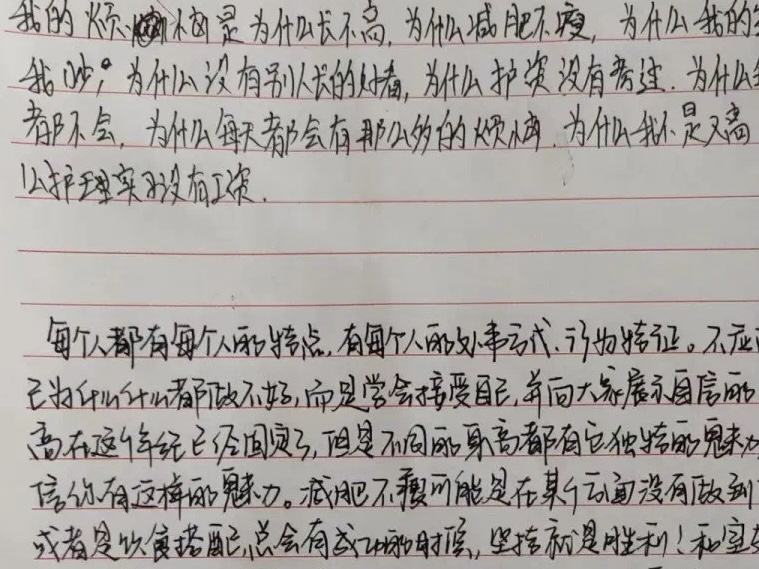 我的烦恼是为什么长不高,为什么减肥不瘦,为什么我的
我吵,为什么没有别人长的好看,为什么护资没有考过.为什么
都不会,为什么每天都会有那么多的烦恼.为什么我不是又高
么护理实习没有工资.
每个人都有每个人的特点,有每个人的处事方式、行为特征。不应
己为什么什么都做不好,而是学会接受自己,并向大家展示自信的
高在这个年纪已经固定了,但是不同的身高都有它独特的魅力
信你有这样的魅力。减肥不瘦可能是在某个方面没有做到
或者是饮食搭配,总会有成功的时候,坚持就是胜利!和室友